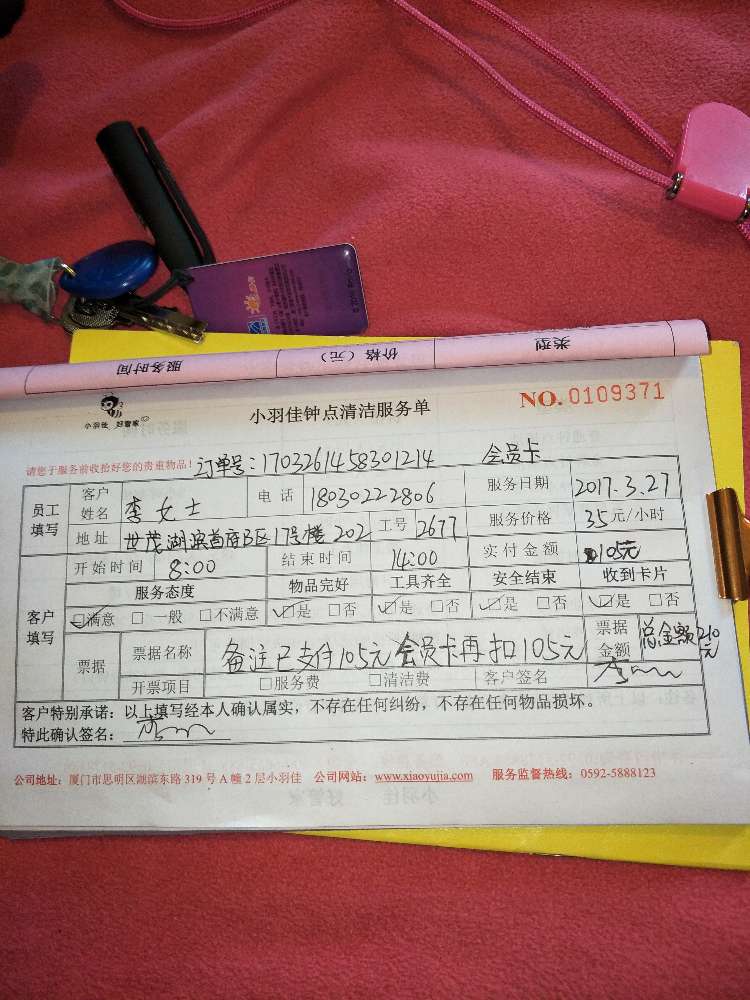 类型 价格（元） 服务时间
小羽佳 好管家
小羽佳钟点清洁服务单
NO. 0109371
请您于服务前收拾好您的贵重物品！ 订单号：1703261458301214 会员卡
员工填写 客户姓名 李女士 电话 18030222806 服务日期 2017.3.27
地址 世茂湖滨首府B区17号楼202 工号 2677 服务价格 35元/小时
开始时间 8:00 结束时间 14:00 实付金额 105元
客户填写 服务态度 物品完好 工具齐全 安全结束 收到卡片
☑满意 □一般 □不满意 ☑是 □否 ☑是 □否 ☑是 □否 ☑是 □否
票据 票据名称 备注已支付105元会员卡再扣105元 票据金额 总金额210元
开票项目 □服务费 □清洁费 客户签名
客户特别承诺：以上填写经本人确认属实，不存在任何纠纷，不存在任何物品损坏。
特此确认签名：
公司地址：厦门市思明区湖滨东路319号A幢2层小羽佳 公司网站：www.xiaoyujia.com 服务监督热线：0592-5888123